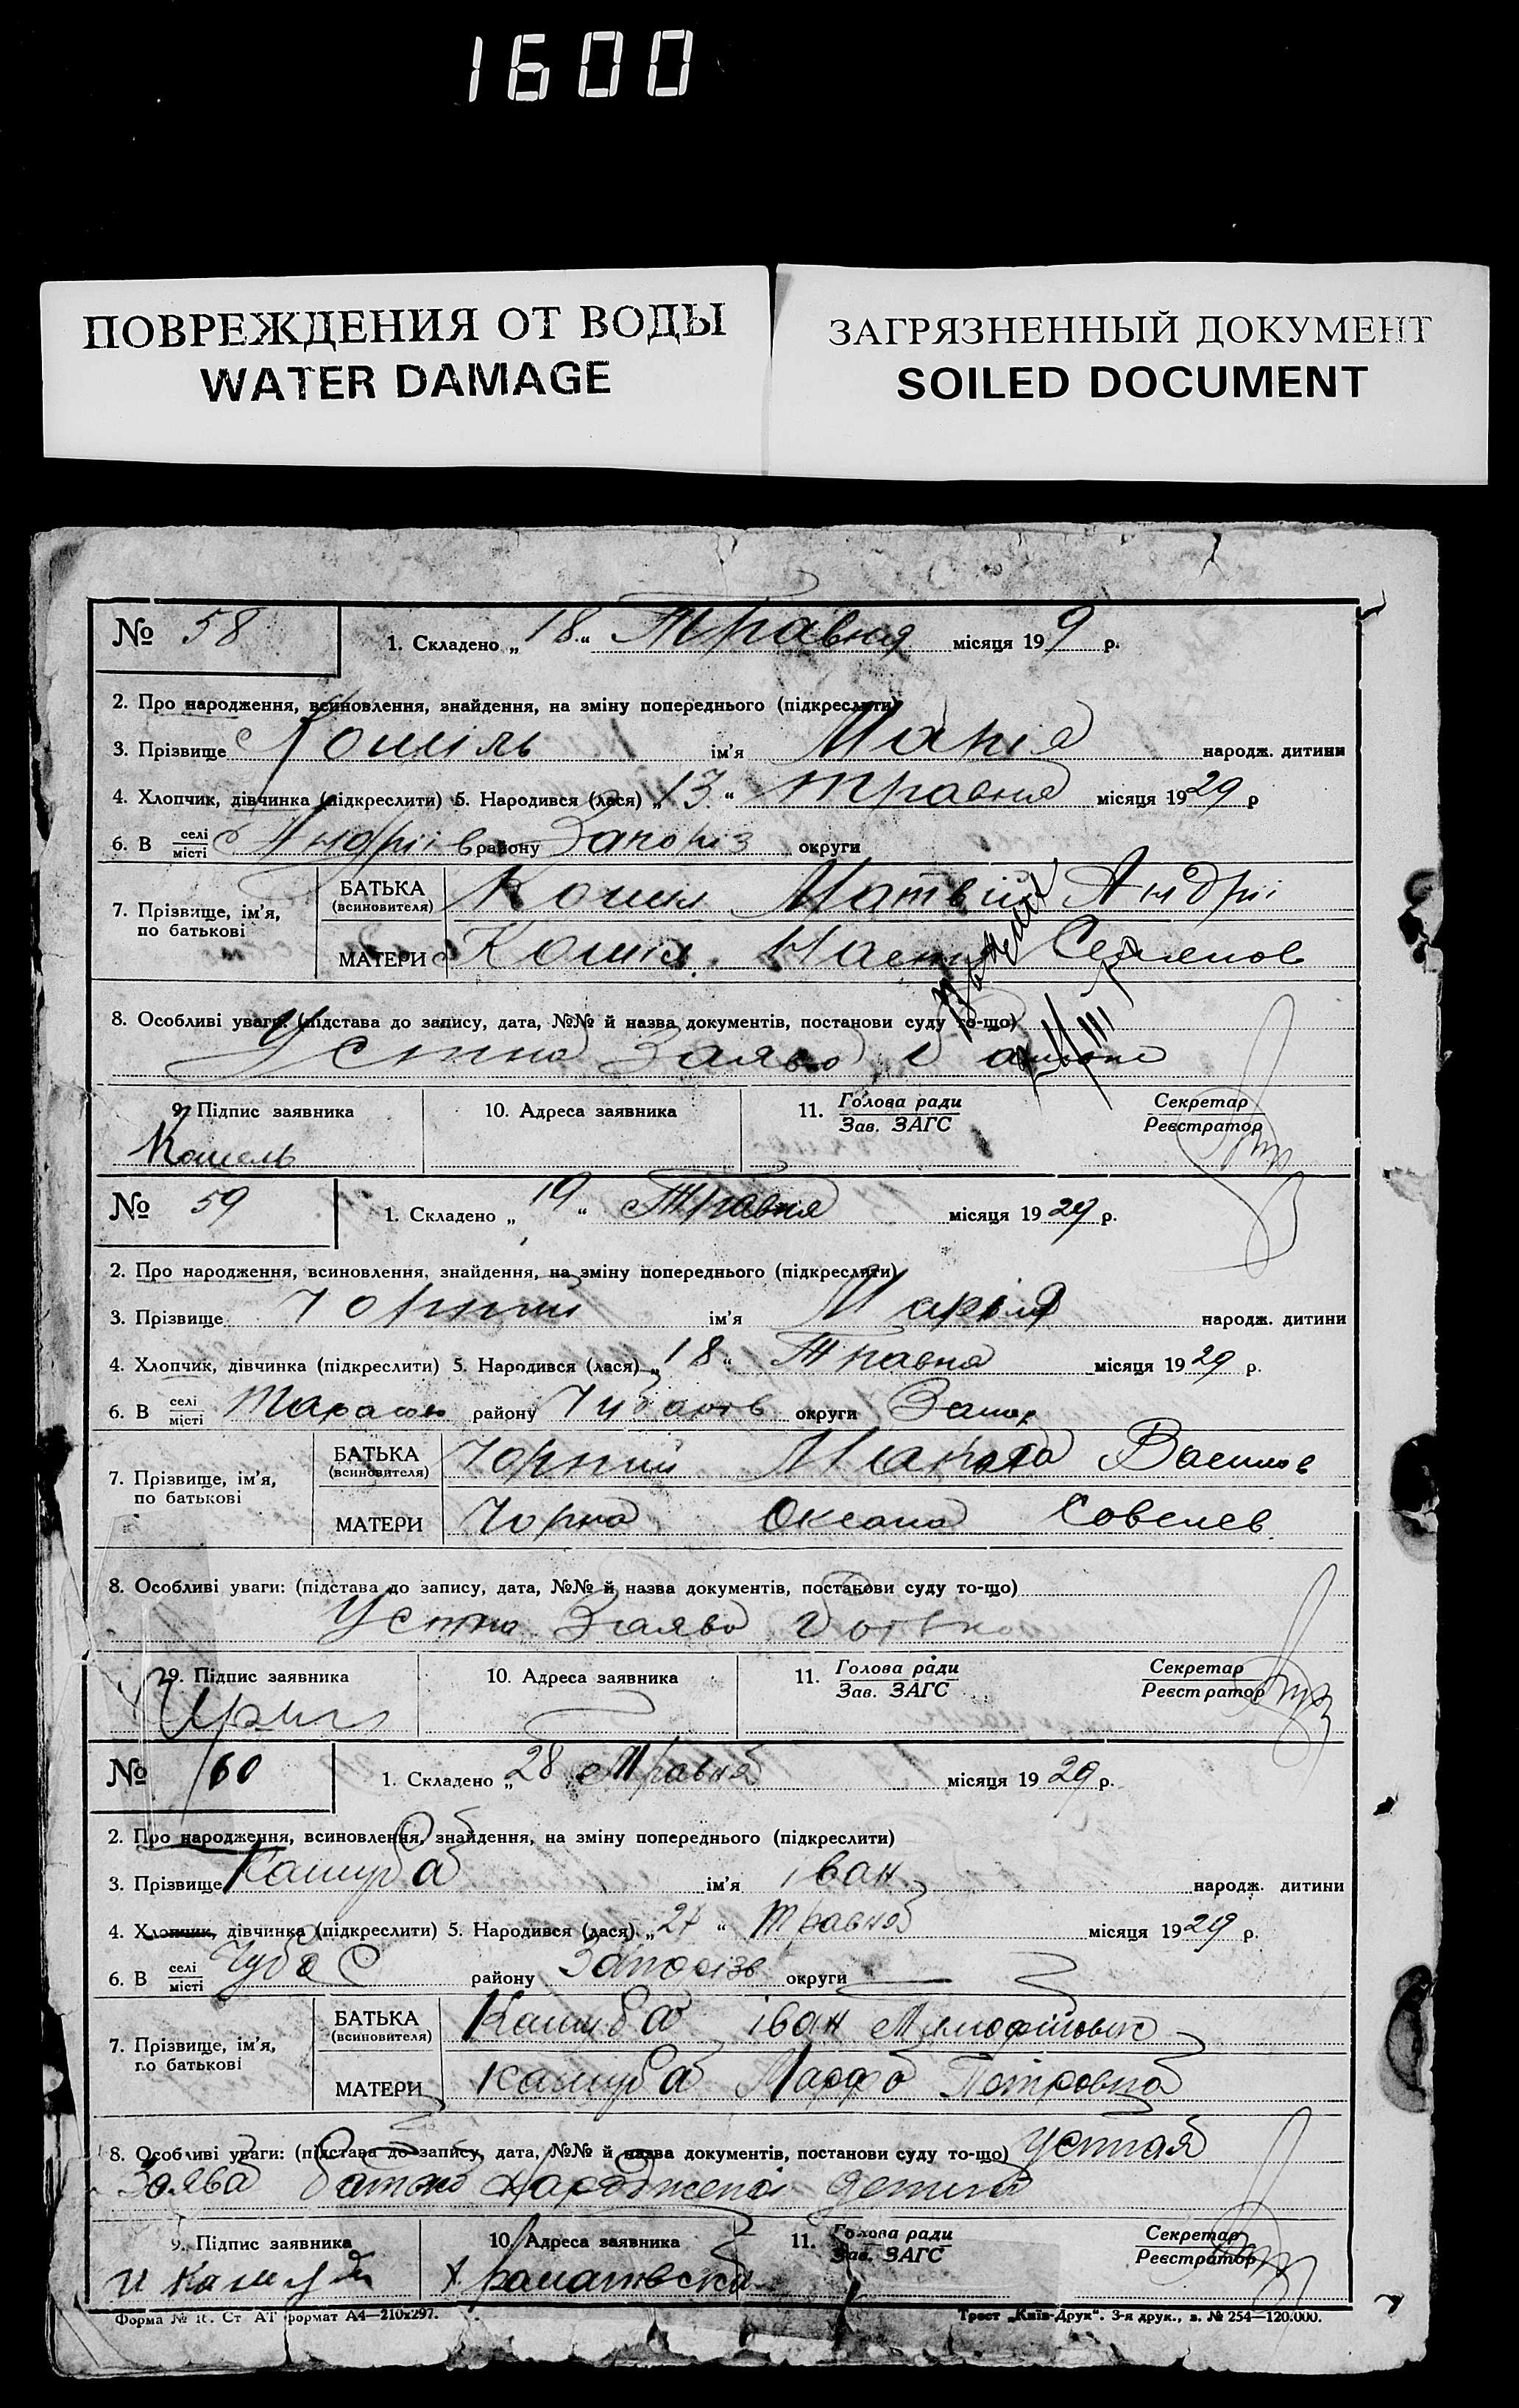 1600
ПОВРЕЖДЕНИЯ ОТ ВОДЫ
WATER DAMAGE
ЗАГРЯЗНЕННЫЙ ДОКУМЕНТ
SOILED DOCUMENT
№ 58
1. Складено „ 18 “ Травня місяця 19 9 р.
2. Про народження, всиновлення, знайдення, на зміну попереднього (підкреслити)
3. Прізвище Кошіль ім'я Марія народж. дитини
4. Хлопчик, дівчинка (підкреслити) 5. Народився (лася) „ 13 “ травня місяця 19 29 р
6. В селі місті Андріїв району Запоріз округи
7. Прізвище, ім'я, по батькові
БАТЬКА (всиновителя) Кошіл Матвій Андрії
МАТЕРИ Кошіл Наст Семенов
8. Особливі уваги: (підстава до запису, дата, №№ й назва документів, постанови суду то-що)
Устна Заява
9. Підпис заявника
10. Адреса заявника
11. Голова ради
Зав. ЗАГС
Секретар
Реєстратор
Кошель
№ 59
1. Складено „ 19 “ Травня місяця 19 29 р.
2. Про народження, всиновлення, знайдення, на зміну попереднього (підкреслити)
3. Прізвище Чорний ім'я Марія народж. дитини
4. Хлопчик, дівчинка (підкреслити) 5. Народився (лася) „ 18 “ Травня місяця 19 29 р.
6. В селі місті Тарасів району округи Запор
7. Прізвище, ім'я, по батькові
БАТЬКА (всиновителя) Чорний Василів
МАТЕРИ Чорна Оксана Совелев
8. Особливі уваги: (підстава до запису, дата, №№ й назва документів, постанови суду то-що)
Устна Заява батька
9. Підпис заявника
10. Адреса заявника
11. Голова ради
Зав. ЗАГС
Секретар
Реєстратор
№ 60
1. Складено „ 28 “ Травня місяця 19 29 р.
2. Про народження, всиновлення, знайдення, на зміну попереднього (підкреслити)
3. Прізвище Кашуба ім'я іван народж. дитини
4. Хлопчик, дівчинка (підкреслити) 5. Народився (лася) „ 27 “ травня місяця 19 29 р.
6. В селі місті району округи
7. Прізвище, ім'я, по батькові
БАТЬКА (всиновителя) Кашуба іван Тимофійович
МАТЕРИ Кашуба Марфа Петровна
8. Особливі уваги: (підстава до запису, дата, №№ й назва документів, постанови суду то-що) устная
Заява батька детини
9. Підпис заявника
10. Адреса заявника
11. Голова ради
Зав. ЗАГС
Секретар
Реєстратор
и Кашуба
Ст АТ формат А4—210х297.
Трест „Київ-Друк“. 3-я друк., з. № 254—120.000.